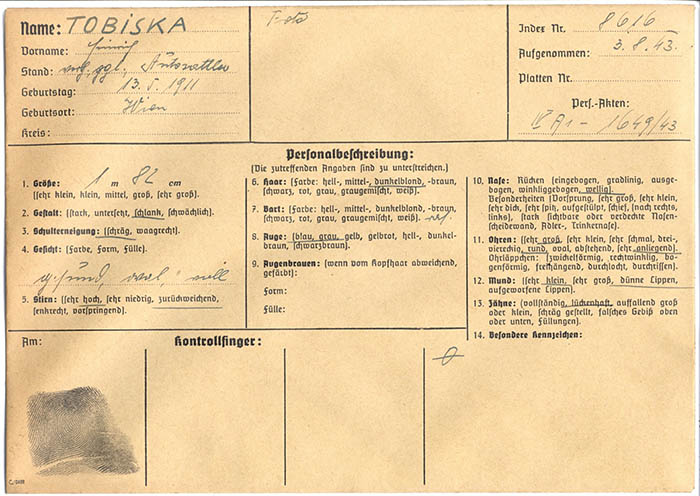 Name: TOBISKA
Vorname: Heinrich
Stand: Autosattler
Geburtstag: 13. 5. 1911
Geburtsort: Wien
Kreis:
Foto
Index Nr. 8616
Aufgenommen: 3. 8. 43.
Platten Nr.
Pers.-Akten:
IV A1 - 1649/43
Personalbeschreibung:
(Die zutreffenden Angaben sind zu unterstreichen.)
1. Größe: 1 m 82 cm
(sehr klein, klein, mittel, groß, sehr groß).
2. Gestalt: (stark, untersetzt, schlank, schwächlich).
3. Schulterneigung: (schräg, waagrecht).
4. Gesicht: (Farbe, Form, Fülle).
gesund, oval, voll
5. Stirn: (sehr hoch, sehr niedrig, zurückweichend,
senkrecht, vorspringend).
6. Haar: (Farbe: hell-, mittel-, dunkelblond, -braun,
schwarz, rot, grau, graugemischt, weiß).
7. Bart: (Farbe: hell-, mittel-, dunkelblond, -braun,
schwarz, rot, grau, graugemischt, weiß). ras.
8. Auge: (blau, grau, gelb, gelbrot, hell-, dunkel-
braun, schwarzbraun).
9. Augenbrauen: (wenn vom Kopfhaar abweichend,
gefärbt):
Form:
Fülle:
10. Nase: Rücken (eingebogen, gradlinig, ausge-
bogen, winkliggebogen, wellig).
Besonderheiten (Vorsprung, sehr groß, sehr klein,
sehr dick, sehr spitz, aufgestülpt, schief, (nach rechts,
links), stark sichtbare oder verdeckte Nasen-
scheidewand, Adler-, Trinkernase).
11. Ohren: (sehr groß, sehr klein, sehr schmal, drei-
viereckig, rund, oval, abstehend, sehr anliegend).
Ohrläppchen: (zwickelförmig, rechtwinklig, bo-
genförmig, freihängend, durchlocht, durchrissen).
12. Mund: (sehr klein, sehr groß, dünne Lippen,
aufgeworfene Lippen).
13. Zähne: (vollständig, lückenhaft, auffallend groß
oder klein, schräg gestellt, falsches Gebiß oben
oder unten, Füllungen).
14. Besondere Kennzeichen:
Am:
Kontrollfinger: